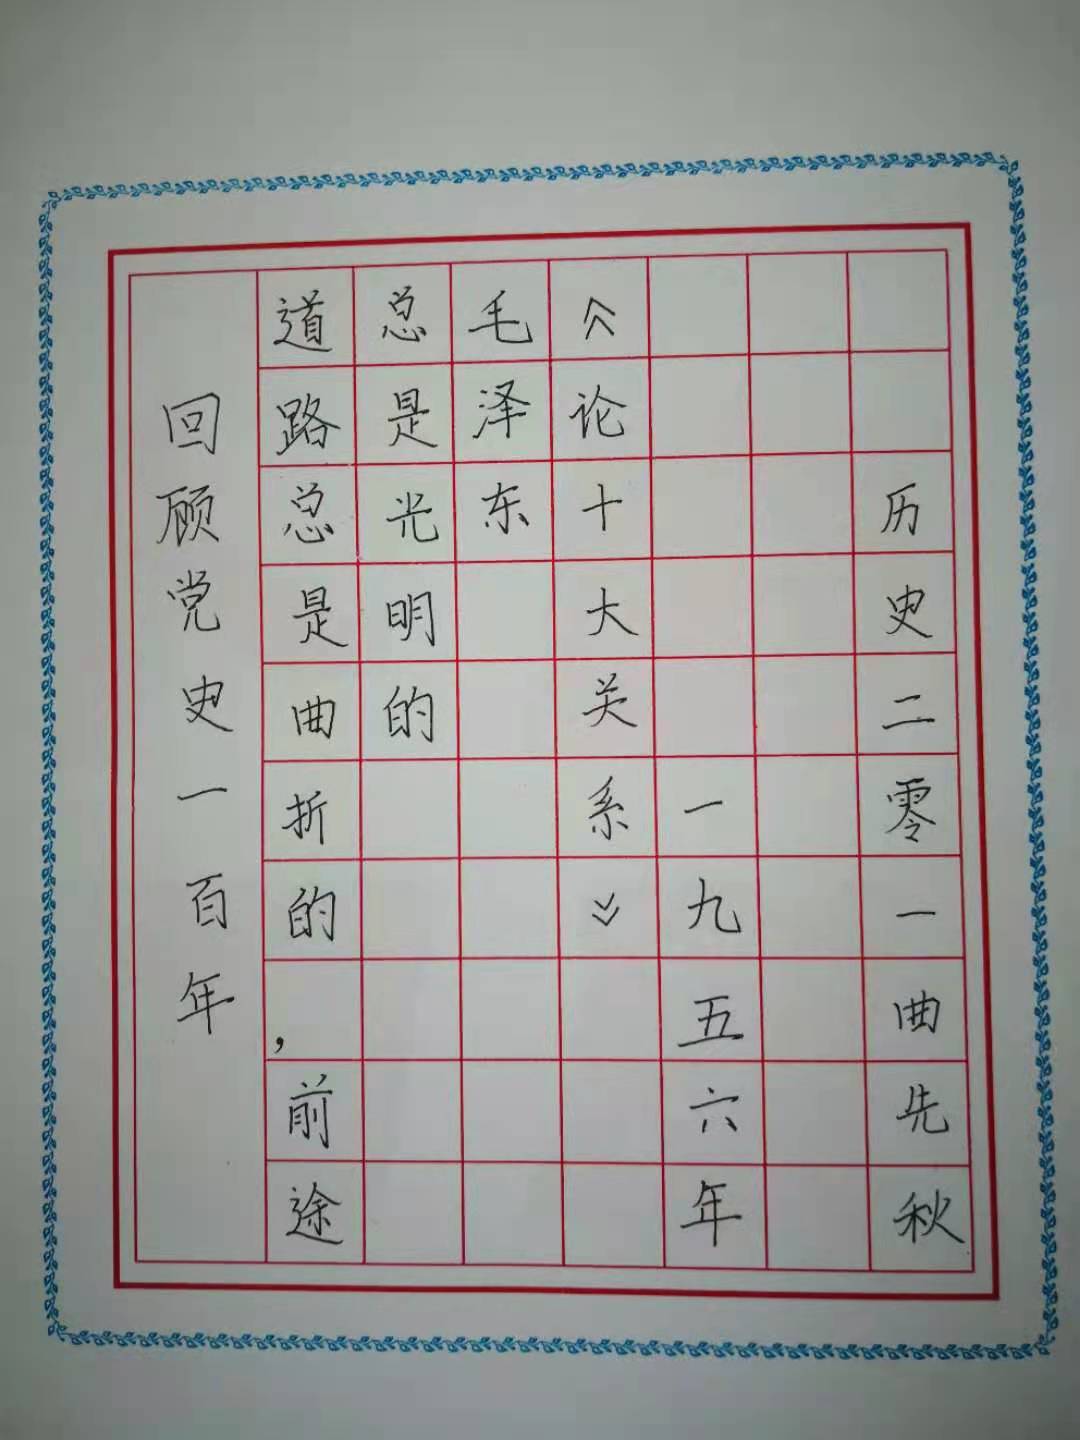 回顾党史一百年
道路总是曲折的，前途
总是光明的
毛泽东
《论十大关系》
一九五六年
历史二零一曲先秋